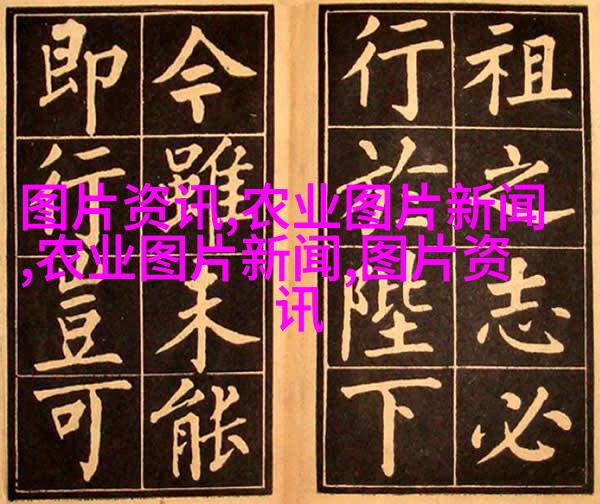 祖之志必
行於陛下
今雖未能
即行豈可
图片资讯,农业图片新闻
,农业图片新闻,图片资
讯